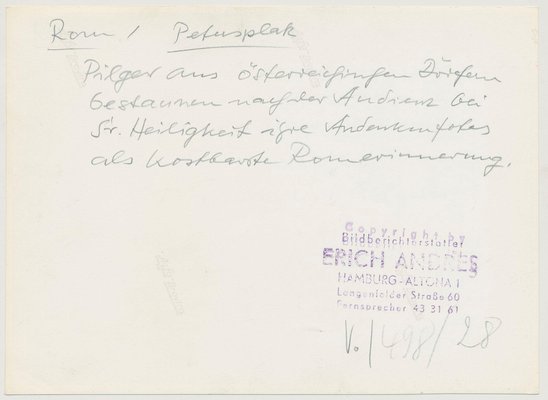 Rom / Petersplatz
Pilger aus österreichischen Dörfern
bestaunen nach der Audienz bei
Sr. Heiligkeit ihre Andenkenfotos
als kostbarste Romerinnerung.
Copyright by
Bildberichterstatter
ERICH ANDRES
HAMBURG-ALTONA 1
Langenfelder Straße 60
Fernsprecher 43 31 61
V./498/28